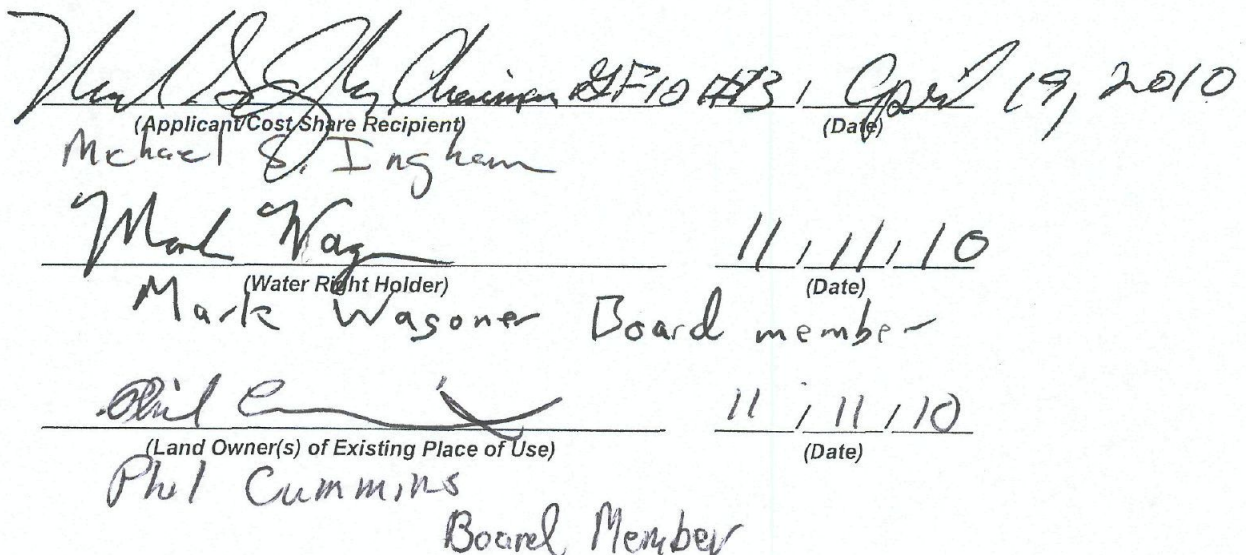 Chairman GF10 #3, April 19, 2010
(Applicant/Cost Share Recipient) (Date)
Michael S. Ingham
Mark Wag 11/11/10
(Water Right Holder) (Date)
Mark Wagoner Board member
Phil C 11/11/10
(Land Owner(s) of Existing Place of Use) (Date)
Phil Cummins
Board Member